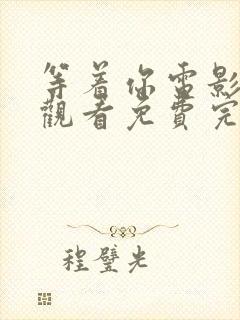 等着你電影
觀看免費完
程璧光